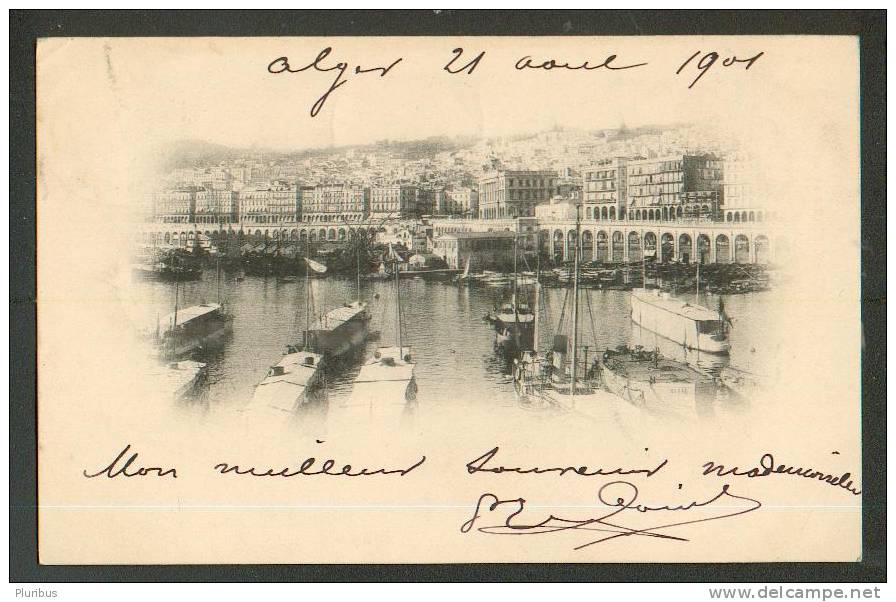 Alger 21 aout 1901
Mon meilleur souvenir mademoiselle
Pluribus
www.delcampe.net